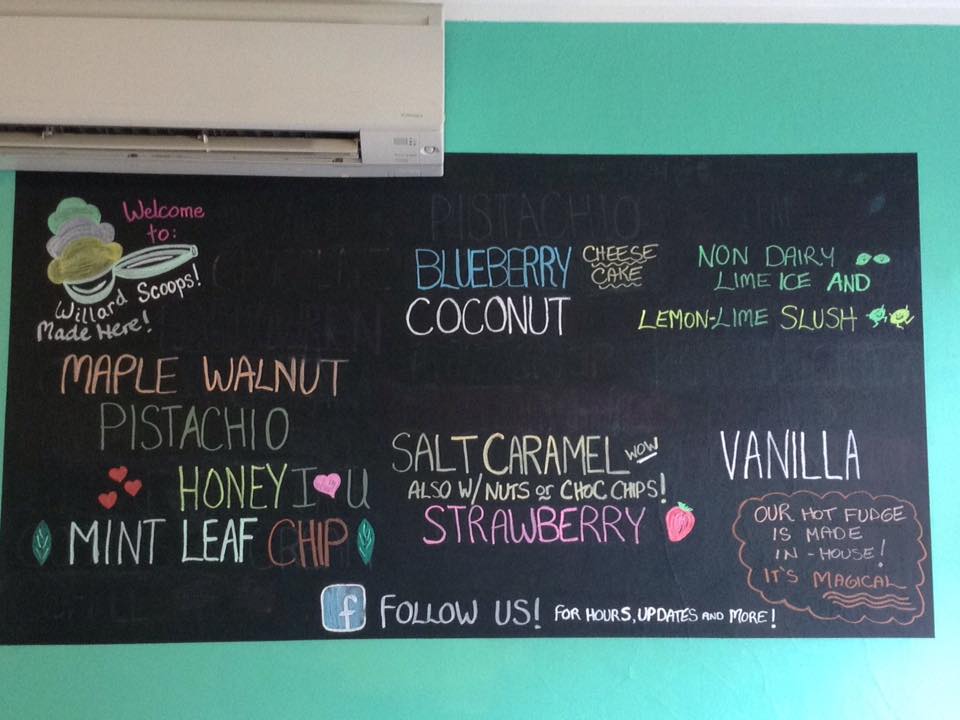 Welcome
to:
Willard Scoops!
Made Here!
MAPLE WALNUT
PISTACHIO
HONEY I U
MINT LEAF CHIP
PISTACHIO
BLUEBERRY CHEESE CAKE
COCONUT
SALT CARAMEL WOW
ALSO W/ NUTS or CHOC CHIPS!
STRAWBERRY
NON DAIRY
LIME ICE AND
LEMON-LIME SLUSH
VANILLA
OUR HOT FUDGE
IS MADE
IN-HOUSE!
IT'S MAGICAL
f FOLLOW US! FOR HOURS, UPDATES AND MORE!